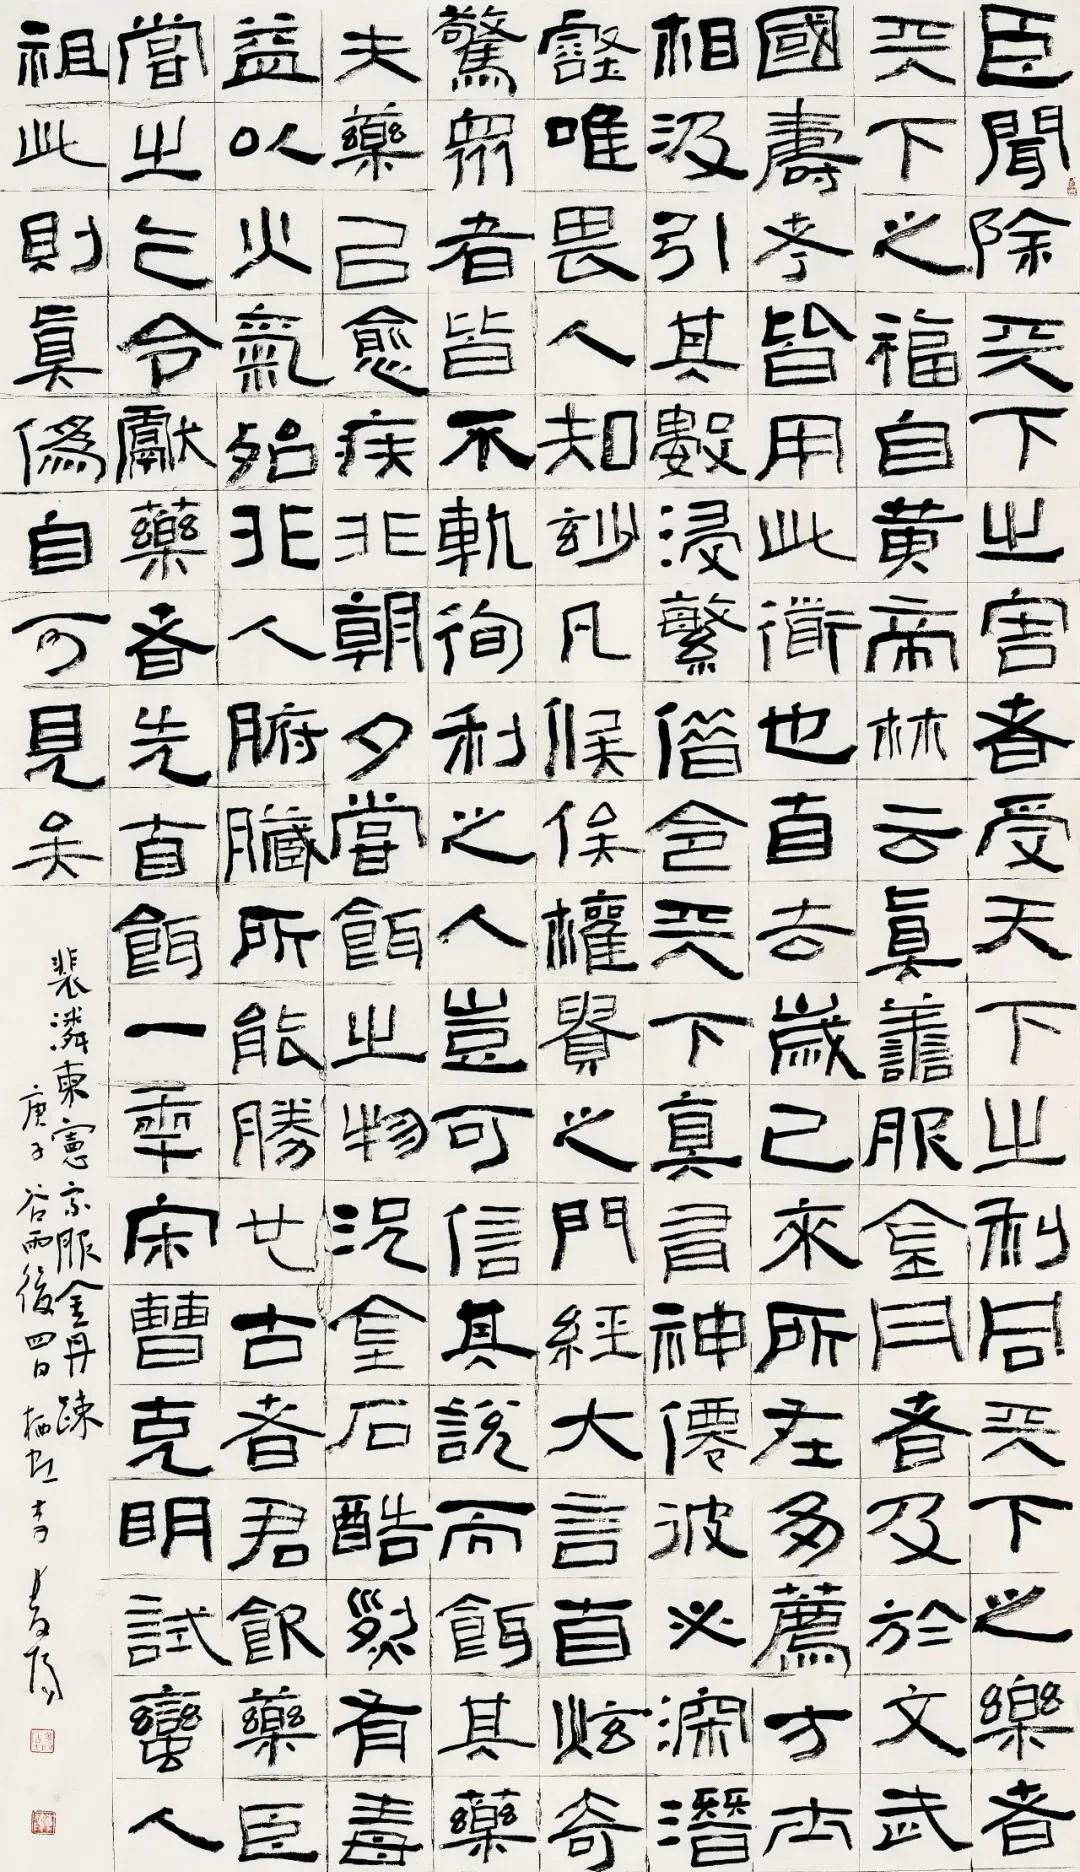 臣聞除天下之害者受天下之利同天下之樂者
天下之福自黃帝林云眞善服金丹者及於文武
國壽考皆用此道也自去歲已來所在多薦方士
相汲引其數浸繁借令天下眞有神僊彼必深潛
壑唯畏人知玅凡候俟權貴之門經大言自炫奇
驚衆者皆不軌徇利之人豈可信其說而餌其藥
夫藥已愈疾非朝夕嘗餌之物況金石酷烈有毒
益以火氣殆非人腑臟所能勝也古者君飲藥臣
嘗之乞令獻藥者先自餌一年宋曹克明試蠻人
祖此則眞僞自可見矣
裴潾柬憲宗服金丹疏
庚子谷雨後四日